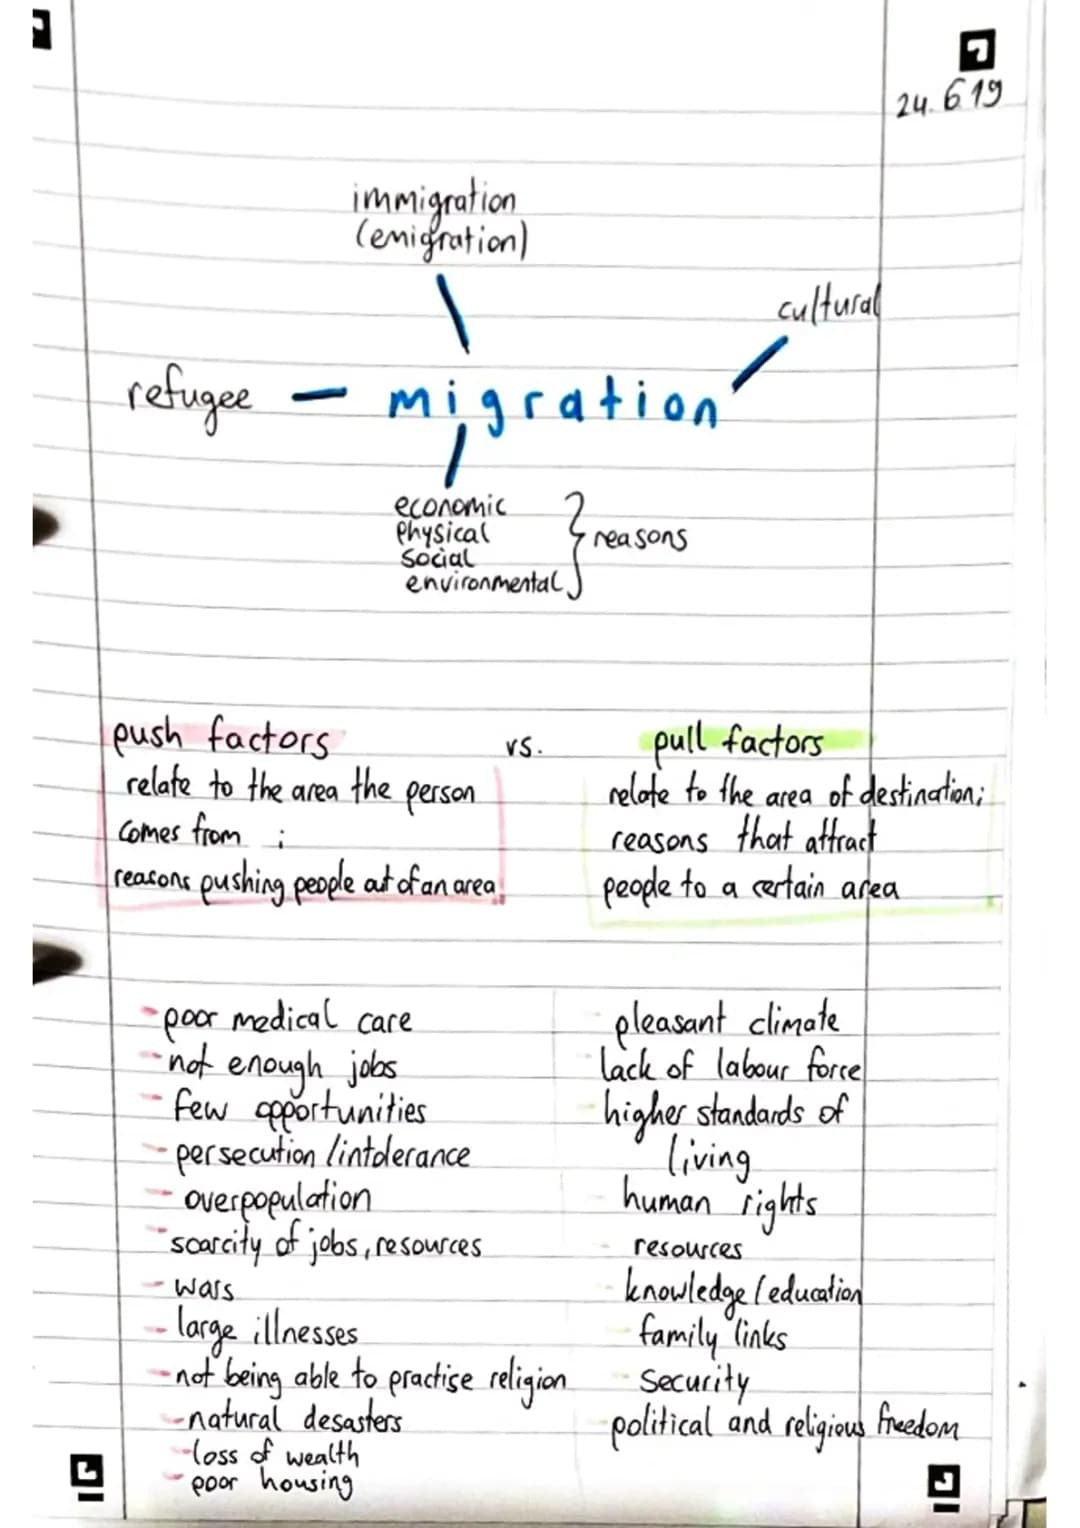 24.6.19
immigration
(emigration)
cultural
refugee – migration
economic
physical
social
environmental } reasons
push factors vs. pull factors
relate to the area the person
comes from ;
reasons pushing people out of an area!
relate to the area of destination;
reasons that attract
people to a certain area
- poor medical care
- not enough jobs
- few opportunities
- persecution / intolerance
- overpopulation
- scarcity of jobs, resources
- wars
- large illnesses
- not being able to practise religion
- natural desasters
- loss of wealth
- poor housing
- pleasant climate
- lack of labour force
- higher standards of
living
- human rights
- resources
- knowledge / education
- family links
- security
- political and religious freedom